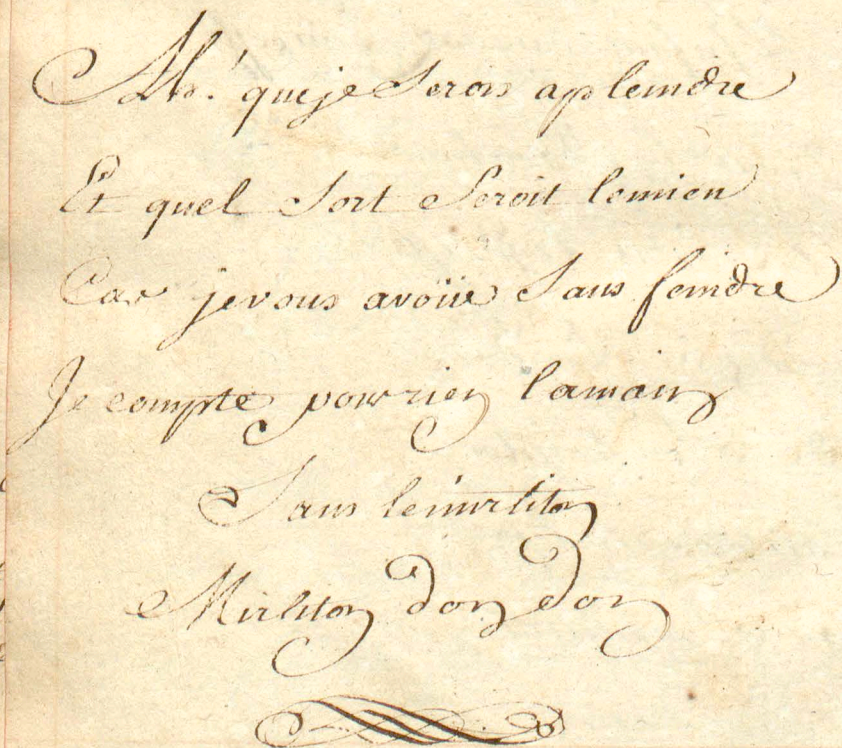 Ah! que je serois a pleindre
Et quel sort seroit le mien
Car je vous avoüe sans feindre
Je compte pour rien la main
Sans le mirliton
Mirliton don don